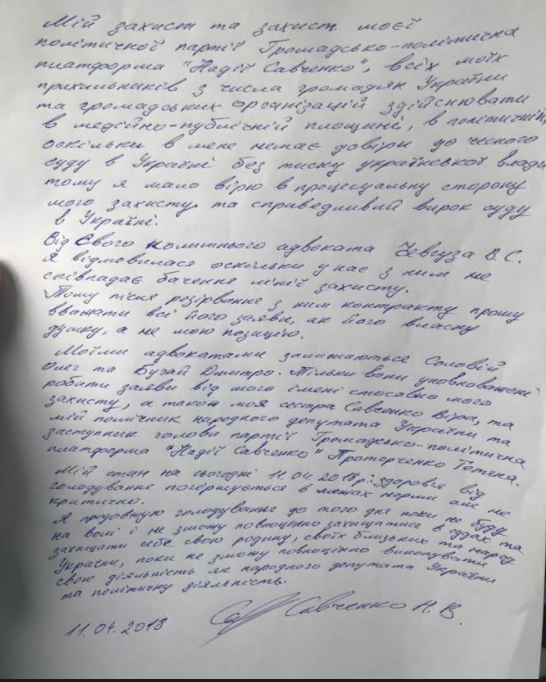 Мій захист та захист моєї
політичної партії Громадсько-політична
платформа "Надії Савченко", всіх моїх
прихильників з числа громадян України
та громадських організацій здійснювати
в медійно-публічній площині, в політичній,
оскільки в мене немає довіри до чесного
суду в Україні без тиску української влади
тому я мало вірю в процесуальну сторону
мого захисту та справедливий вирок суду
в Україні.
Від Свого колишнього адвоката Чевгуза В.С.
Я відмовилася оскільки у нас з ним не
співпадає бачення лінії захисту.
Тому після розірвання з ним контракту прошу
вважати всі його заяви, як його власну
думку, а не мою позицію.
Моїми адвокатами залишаються Соловій
Олег та Бугай Дмитро. Тільки вони уповноважені
робити заяви від мого імені стосовно мого
захисту, а також моя сестра Савченко Віра, та
мій помічник народного депутата України та
заступник голови партії Громадсько-політична
платформа "Надії Савченко" Проторченко Тетяна.
Мій стан на сьогодні 11.04.2018р: здоров'я від
голодування погіршується в межах норми але не
критично.
Я продовжую голодування до того дня поки не буду
на волі і не зможу повноцінно захищатись в судах та
захищати себе свою родину, своїх близьких та народ
України, поки не зможу повноцінно виконувати
свою діяльність як народного депутата України
та політичну діяльність.
11.04.2018 Савченко Н.В.